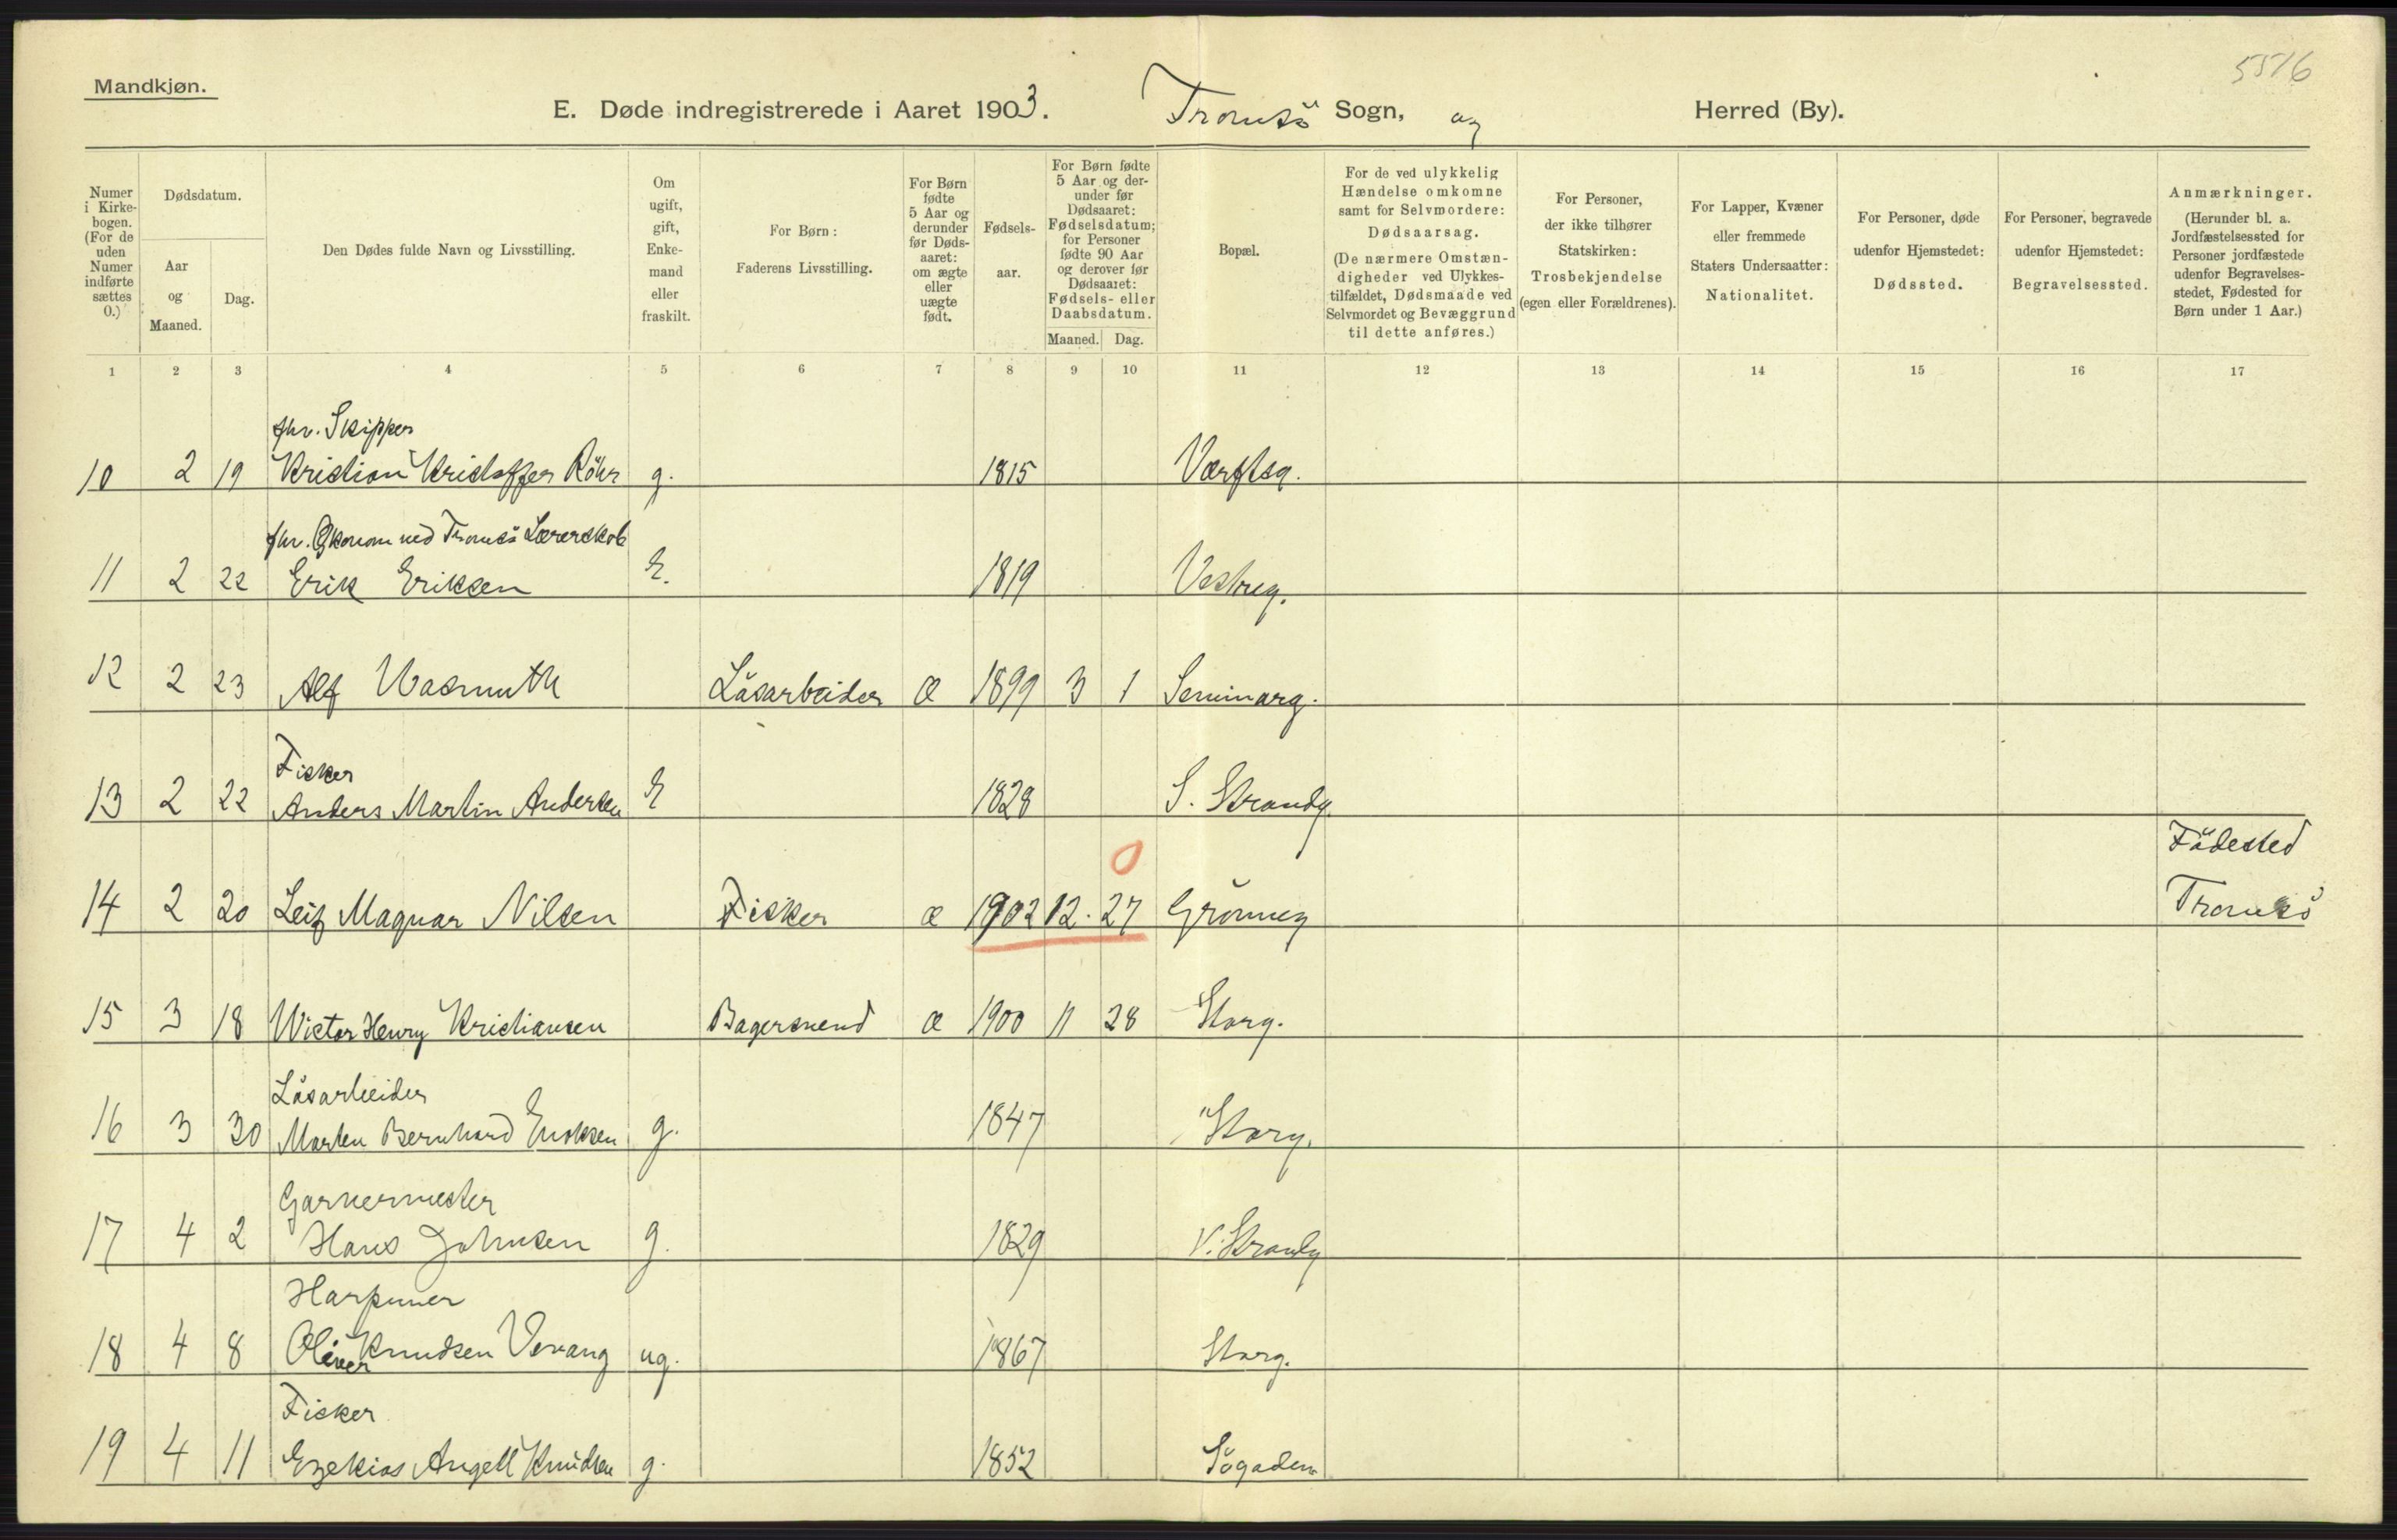 Mandkjøn.
5516
E. Døde indregistrerede i Aaret 1903. Tromsö Sogn, og Herred (By).
Numer i Kirkebogen. (For de uden Numer indførte sættes 0.)
Dødsdatum.
Aar og Maaned.
Dag.
Den Dødes fulde Navn og Livsstilling.
Om ugift, gift, Enkemand eller fraskilt.
For Børn: Faderens Livsstilling.
For Børn fødte 5 Aar og derunder før Dødsaaret: om ægte eller uægte født.
Fødselsaar.
For Børn fødte 5 Aar og derunder før Dødsaaret: Fødselsdatum; for Personer fødte 90 Aar og derover før Dødsaaret: Fødsels- eller Daabsdatum.
Maaned. Dag.
Bopæl.
For de ved ulykkelig Hændelse omkomne samt for Selvmordere: Dødsaarsag. (De nærmere Omstændigheder ved Ulykkestilfældet, Dødsmaade ved Selvmordet og Bevæggrund til dette anføres.)
For Personer, der ikke tilhører Statskirken: Trosbekjendelse (egen eller Forældrenes).
For Lapper, Kvæner eller fremmede Staters Undersaatter: Nationalitet.
For Personer, døde udenfor Hjemstedet: Dødssted.
For Personer, begravede udenfor Hjemstedet: Begravelsessted.
Anmærkninger. (Herunder bl. a. Jordfæstelsessted for Personer jordfæstede udenfor Begravelsesstedet, Fødested for Børn under 1 Aar.)
1 2 3 4 5 6 7 8 9 10 11 12 13 14 15 16 17
fhv. Skipper
10 2 19 Kristian Kristoffer Röhr g. 1815 Værftsg.
fhv. Økonom ved Tromsö Lærerskole
11 2 22 Erik Eriksen E. 1819 Vestreg.
12 2 23 Alf Wasmuth Lösarbeider æ 1899 3 1 Seminarg.
Fisker
13 2 22 Anders Martin Andersen E 1828 S. Strandg.
Födested
14 2 20 Leif Magnar Nilsen Fisker æ 1902 12. 27 Grönneg Tromsö
0
15 3 18 Wictor Henry Kristiansen Bagersvend æ 1900 11 28 Storg.
Lösarbeider
16 3 30 Morten Bernhard Enoksen g. 1847 Storg.
Garvermester
17 4 2 Hans Johnsen g. 1829 N. Strandg
Harpuner
18 4 8 Oliver Knudsen Vevang ug. 1867 Storg.
Fisker
19 4 11 Ezekias Angell Knudsen g. 1852 Sögaden